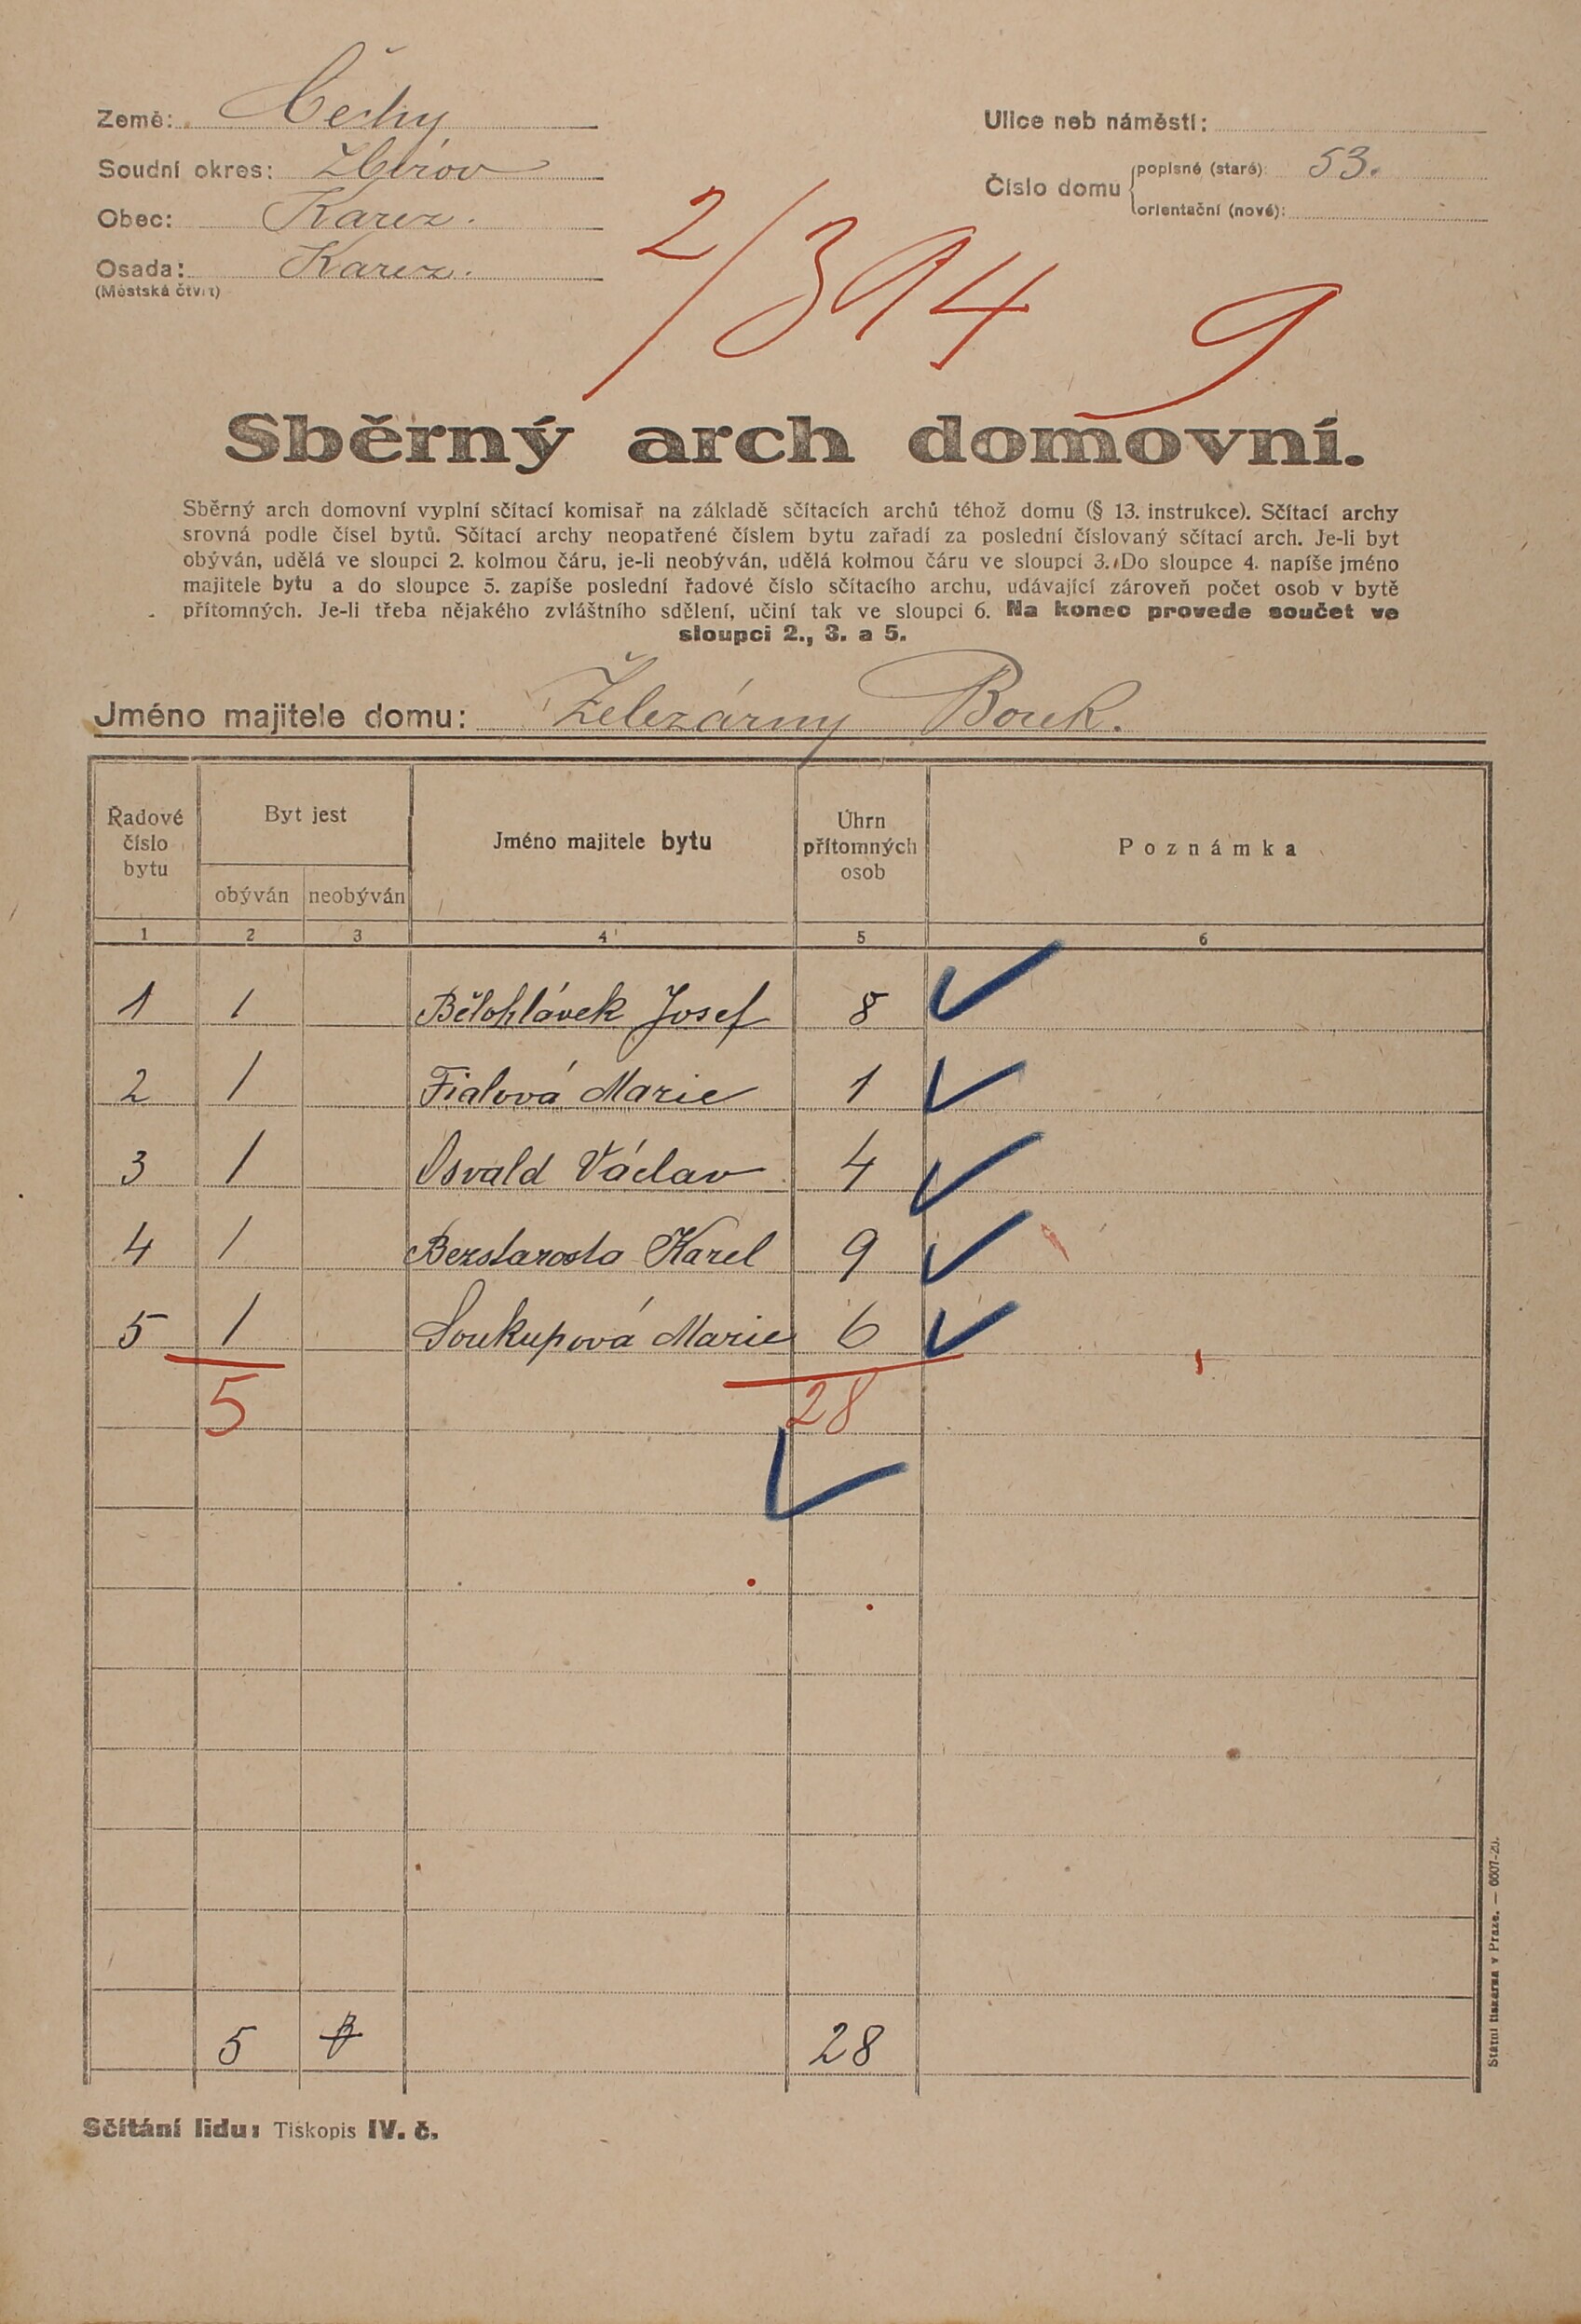 Země: Čechy
Soudní okres: Zbirov
Obec: Karez.
Osada: Karez.
(Městská čtvrt)
Ulice neb náměstí:
Číslo domu
popisné (staré): 53.
orientační (nové):
2/394 9
Sběrný arch domovní.
Sběrný arch domovní vyplní sčítací komisař na základě sčítacích archů téhož domu (§ 13. instrukce). Sčítací archy
srovná podle čísel bytů. Sčítací archy neopatřené číslem bytu zařadí za poslední číslovaný sčítací arch. Je-li byt
obýván, udělá ve sloupci 2. kolmou čáru, je-li neobýván, udělá kolmou čáru ve sloupci 3. Do sloupce 4. napíše jméno
majitele bytu a do sloupce 5. zapíše poslední řadové číslo sčítacího archu, udávající zároveň počet osob v bytě
přítomných. Je-li třeba nějakého zvláštního sdělení, učiní tak ve sloupci 6. Na konec provede součet ve
sloupci 2., 3. a 5.
Jméno majitele domu: Železárny
Řadové číslo bytu
Byt jest
obýván neobýván
Jméno majitele bytu
Úhrn přítomných osob
Poznámka
1 2 3 4 5 6
1 1 Bělohlávek Josef 8
2 1 Fialová Marie 1
3 1 Osvald Václav 4
4 1 Bezstarosta Karel 9
5 1 Soukupová Marie 6
5 28
5 28
Sčítání lidu: Tiskopis IV. č.
Státní tiskárna v Praze. — 6007-20.